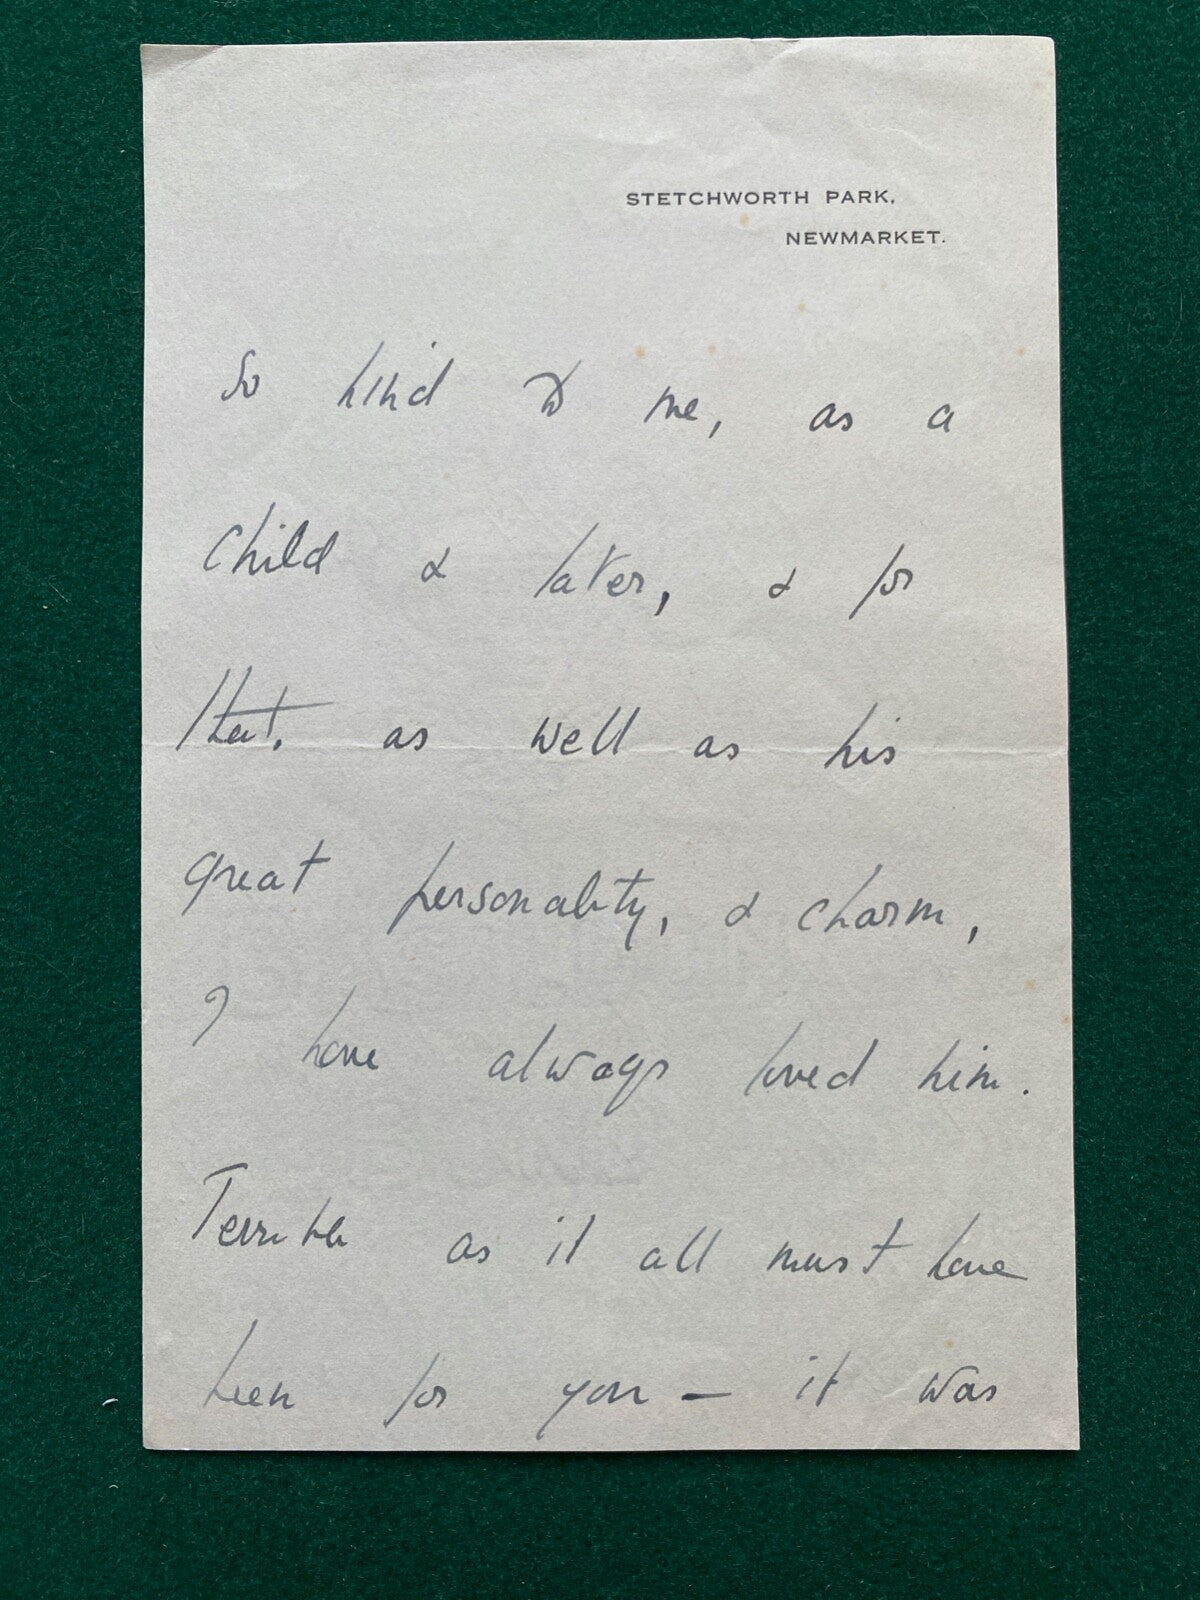 STETCHWORTH PARK,
NEWMARKET.
So kind to me, as a
child & later, & for
that, as well as his
great personality, & charm,
I have always loved him.
Terrible as it all must have
been for you — it was